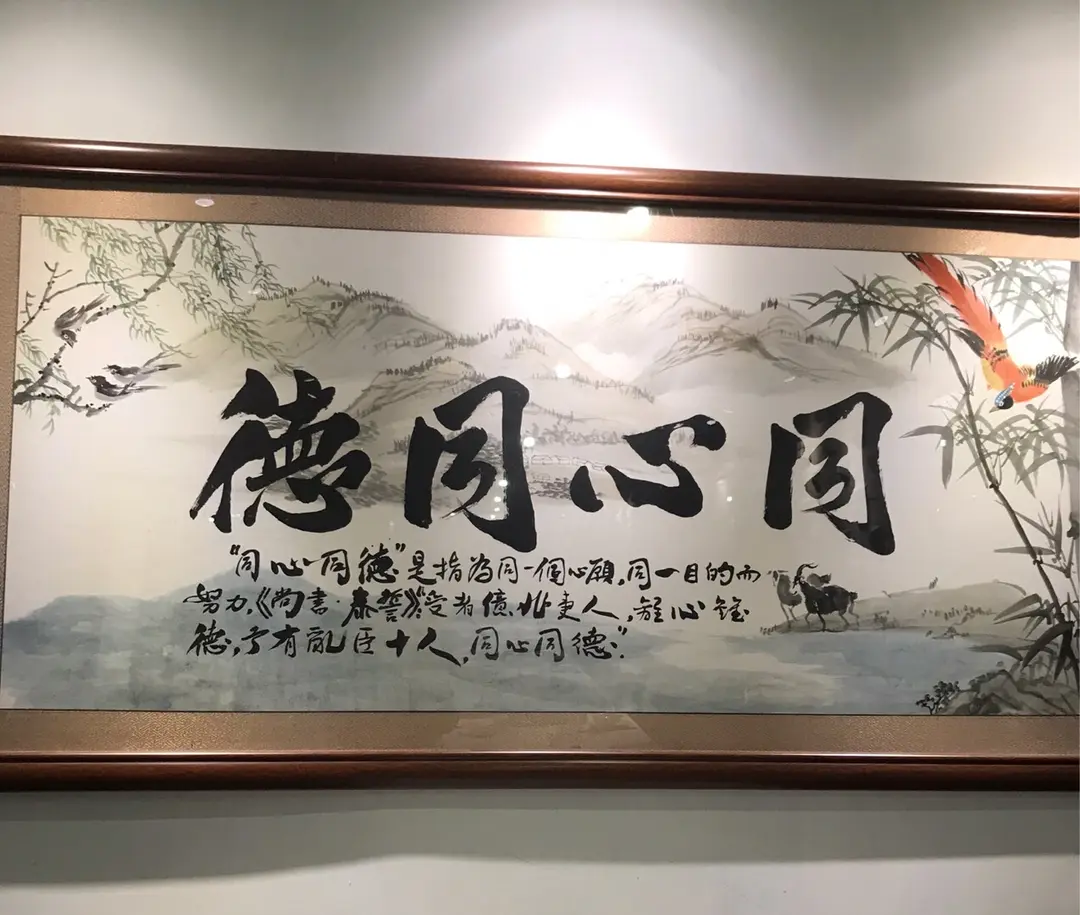 同心同德
“同心同德”是指為同一個心願,同一目的而
努力,《尚書·泰誓》“受有億兆夷人,離心離
德,予有亂臣十人,同心同德”.